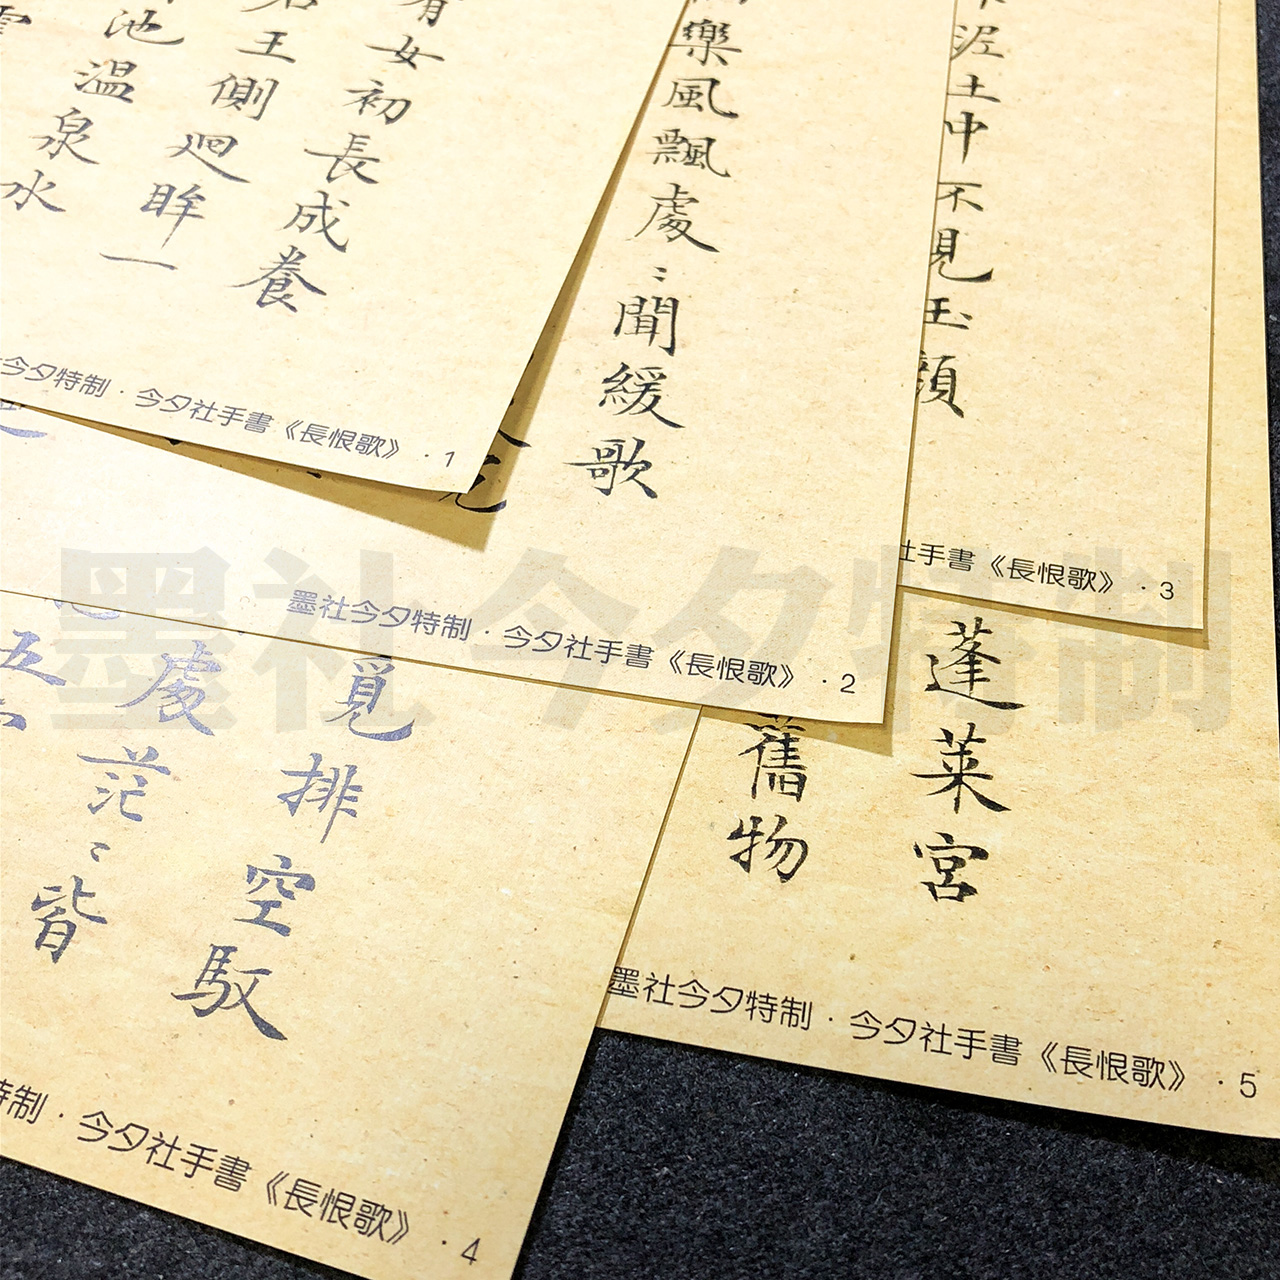 有女初長成養
君王側廻眸一
池温泉水
今夕特制 · 今夕社手書《長恨歌》 · 1
樂風飄處〻聞緩歌
墨社今夕特制 · 今夕社手書《長恨歌》 · 2
泥土中不見玉顔
社手書《長恨歌》 · 3
覓排空馭
處茫〻皆
五
特制 · 今夕社手書《長恨歌》 · 4
蓬萊宮
舊物
墨社今夕特制 · 今夕社手書《長恨歌》 · 5
墨社今夕特制